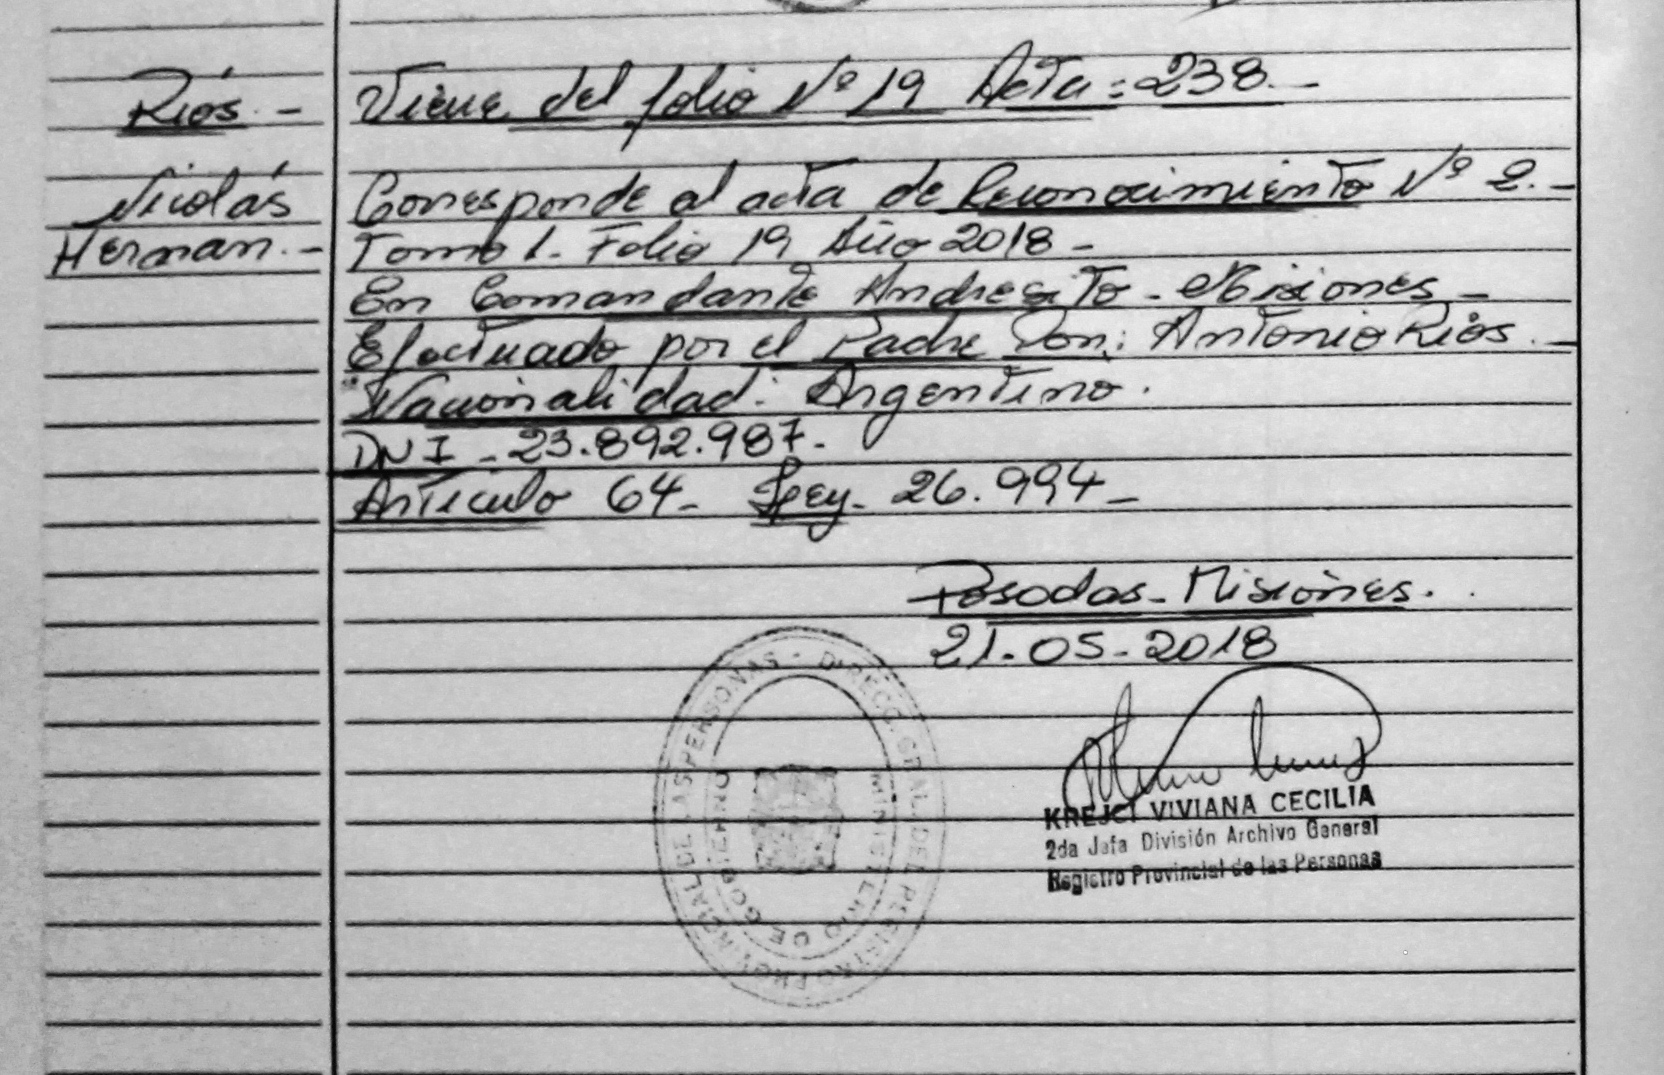 Ríos. -
Nicolás
Hernan. -
Viene del folio Nº 19 Acta: 238. -
Corresponde al acta de Reconocimiento Nº 2. -
Tomo 1. Folio 19 Año 2018 -
En Comandante Andresito - Misiones -
Efectuado por el Padre Don: Antonio Ríos. -
Nacionalidad: Argentino.
DNI - 23.892.987. -
Artículo 64 - Ley - 26.994 -
Posadas - Misiones.
21-05-2018
DIRECC. GRAL. DEL REGISTRO PROVINCIAL DE LAS PERSONAS -
MINISTERIO DE GOBIERNO
KREJCI VIVIANA CECILIA
2da Jefa División Archivo General
Registro Provincial de las Personas